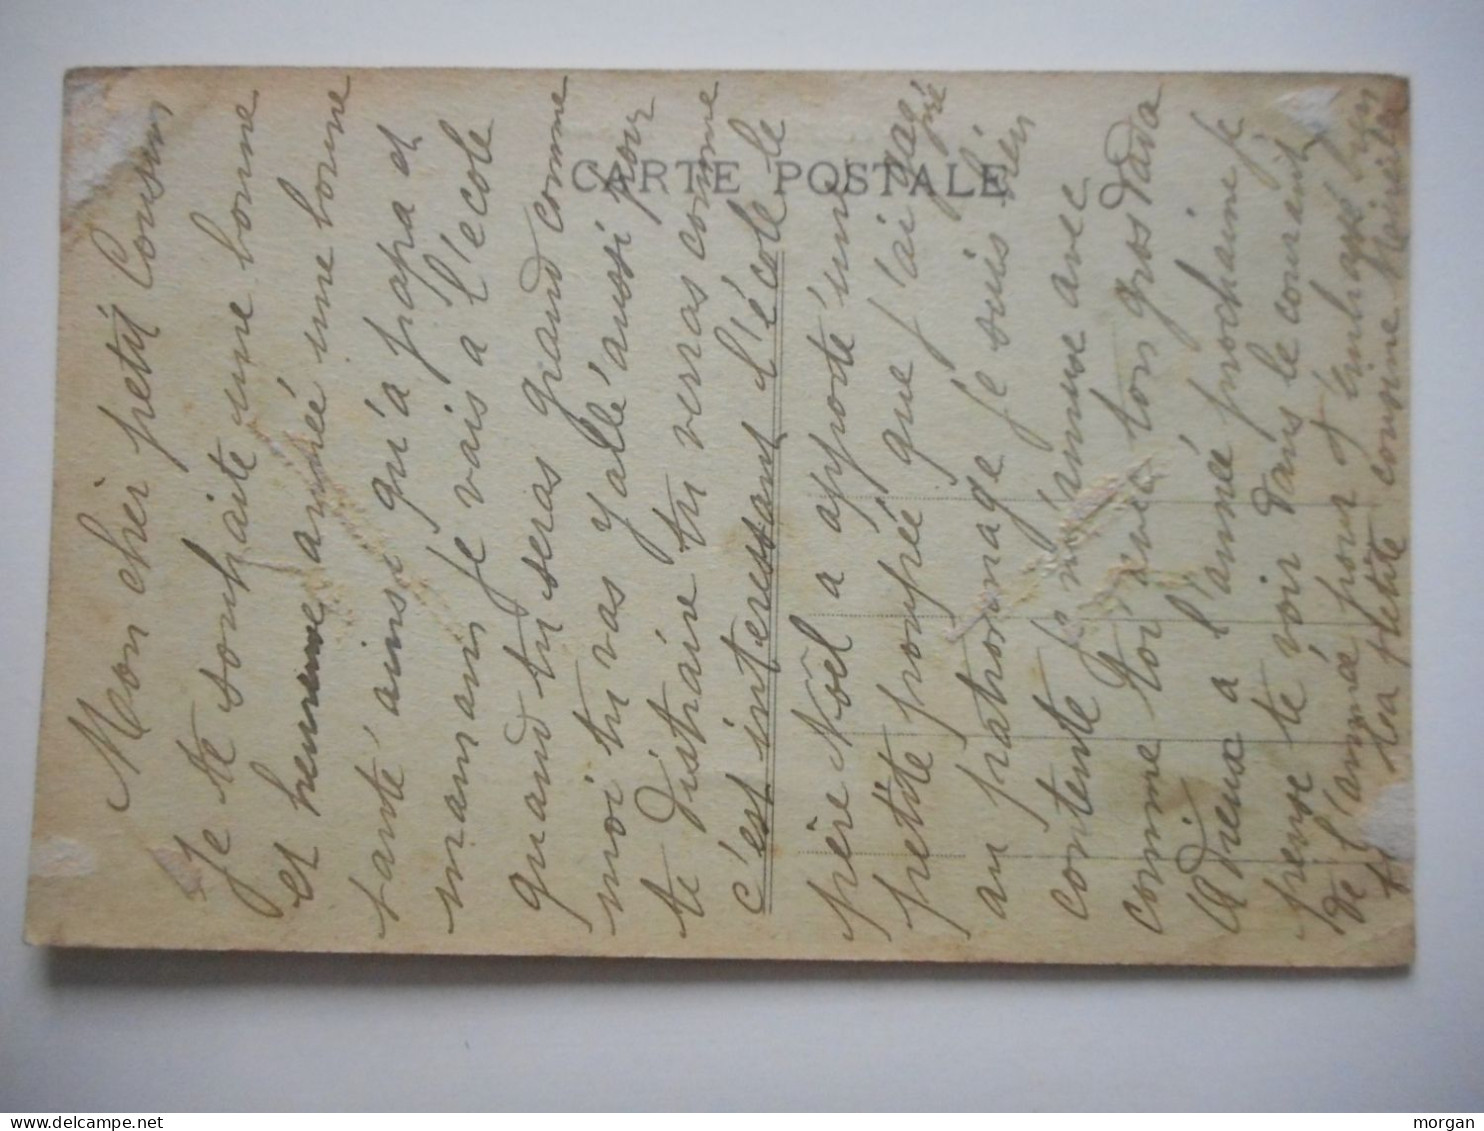 CARTE POSTALE
Mon cher petit Cousin
Je te souhaite une bonne
et heureuse année une bonne
santé ainsi qu'a papa et
maman je vais a l'ecole
quand tu seras grand comme
moi tu vas y allé aussi pour
te distraire tu verras comme
c'est interessant l'école le
père Noël a apporté une
petite poupée que j'ai gagné
au patronage je suis bien
contente je m'amuse avec
comme toi avec ton gros dada
Adieux a l'année prochaine je
pense te voir dans le courant
de l'année pour t'embrassé bien
ta petite cousine
morgan